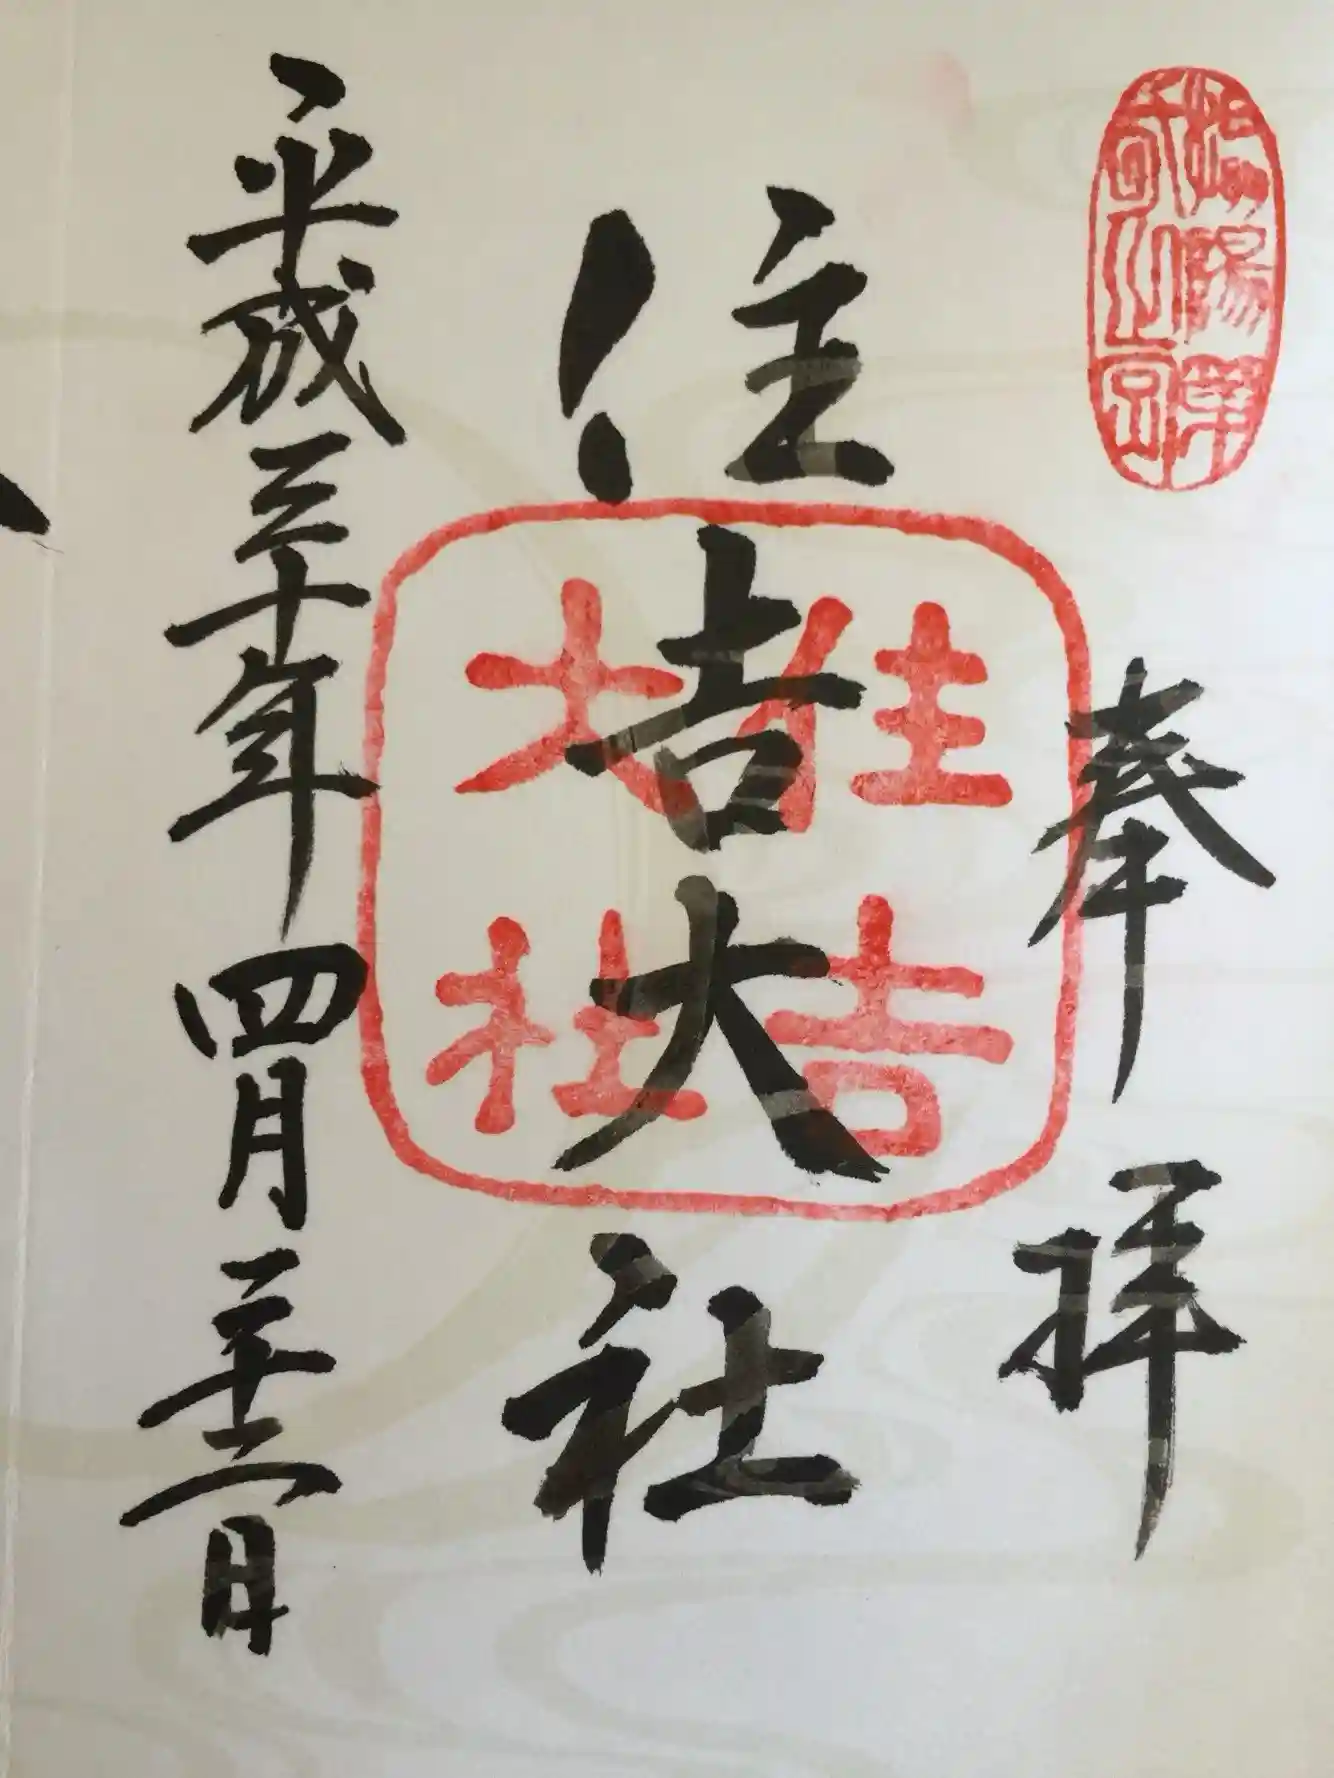 奉拝
住吉大社
住吉
大社
平成三十年四月二十二日